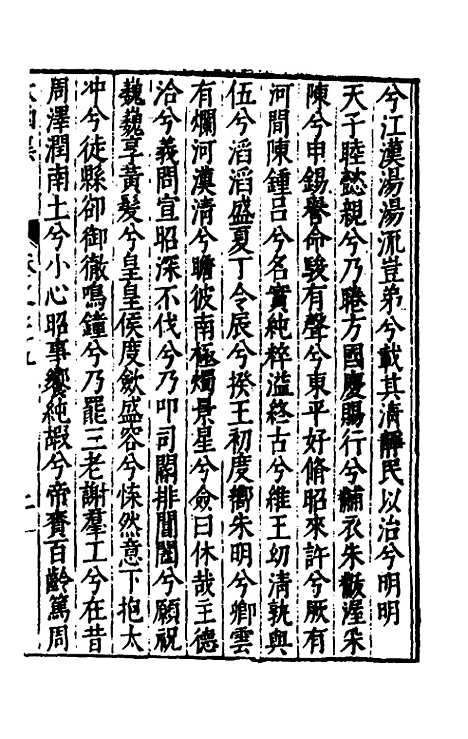 兮江漢湯湯流豈弟兮載其清靜民以治兮明明
天子睦懿親兮乃睠方國慶賜行兮黼衣朱黻渥采
陳兮申錫譽命駿有聲兮東平好脩昭來許兮厥有
河間陳鍾呂兮名實純粹溢終古兮維王幼清孰與
伍兮滔滔盛夏丁令辰兮揆王初度嚮朱明兮卿雲
有爛河漢清兮瞻彼南極燭景星兮僉曰休哉主德
洽兮義問宣昭深不伐兮乃叩司閽排閶闔兮願祝
魏魏享黃髮兮皇皇侯度歛盛容兮悚然意下抱太
冲兮徒縣卻御徹鳴鐘兮乃罷三老謝羣工兮在昔
周澤潤南土兮小心昭事饗純嘏兮帝賚百齡篤周